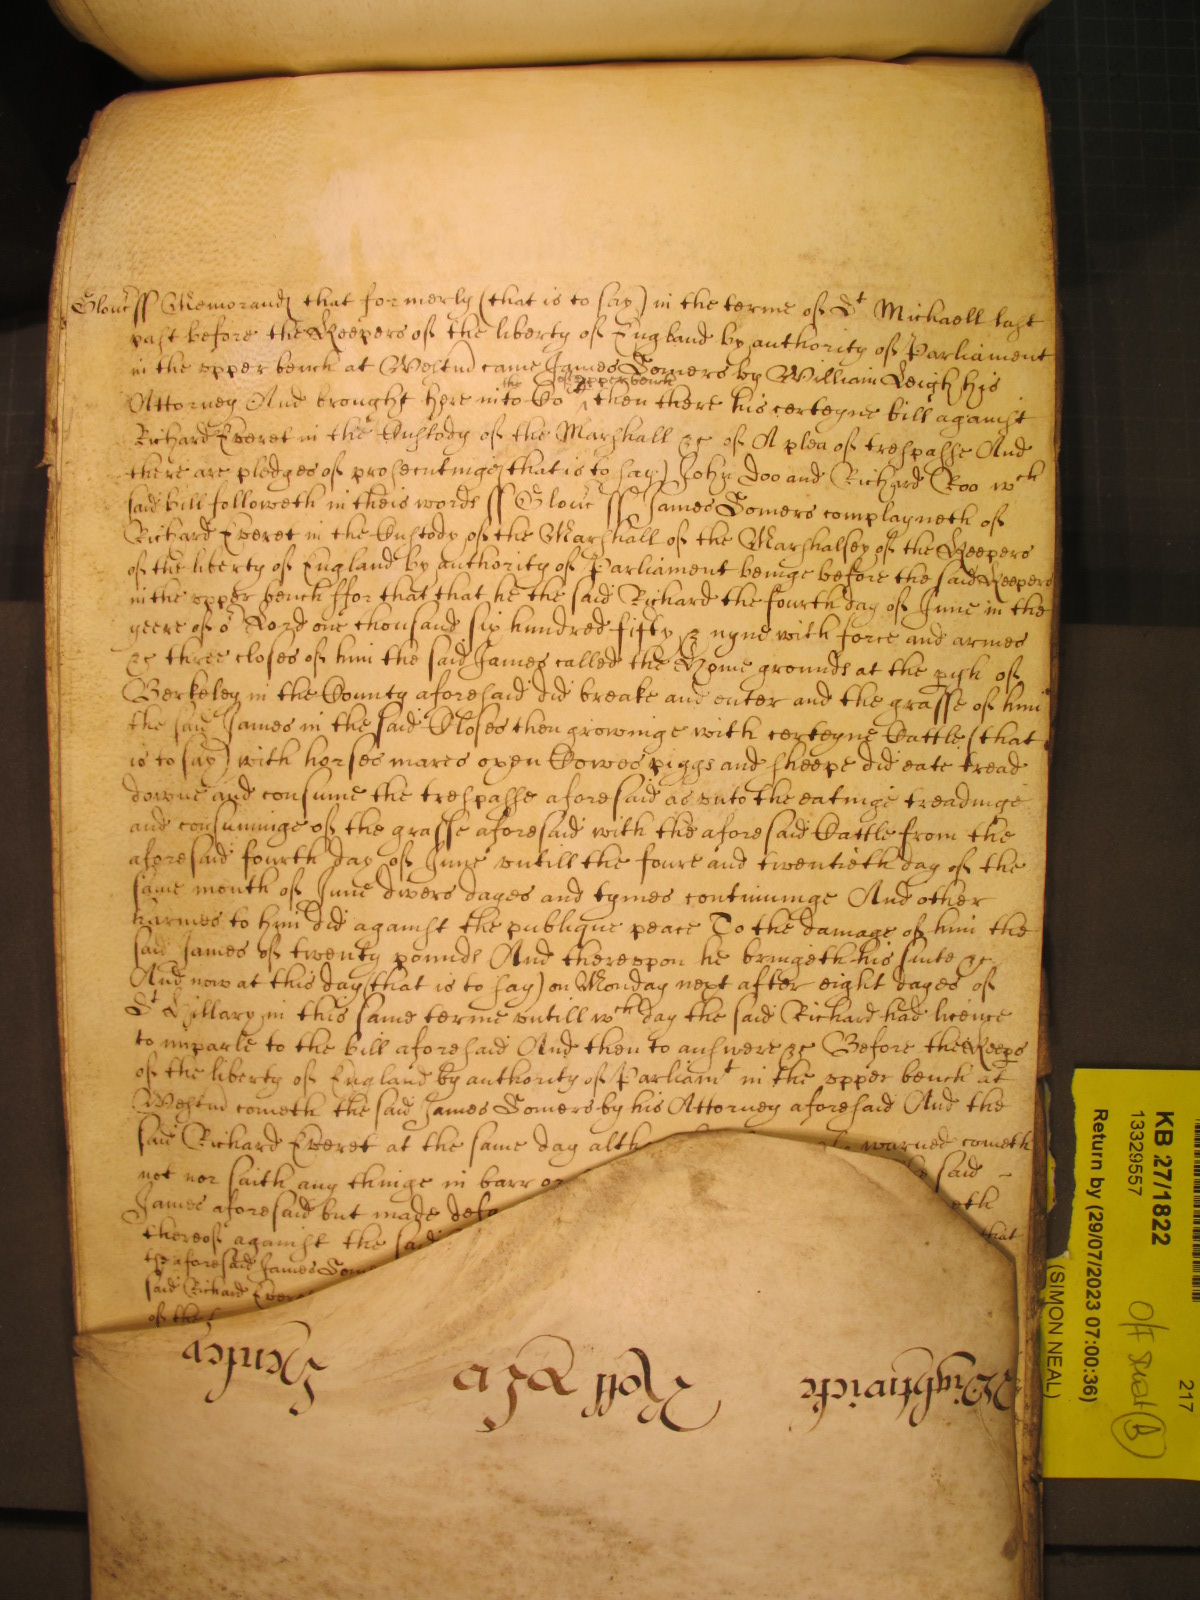 Glouc ss Memorand that formerly (that is to say) in the terme of St Michaell last
past before the Keepers of the liberty of England by authority of Parliament
in the upper bench at Westm came James Somers by William Leigh his
the of upper bench
Attorney And brought here into Co then there his certeyne bill against
Richard Everet in the Custody of the Marshall &c of A plea of trespasse And
there are pledges of prosecutinge (that is to say) John Doo and Richard Roo wch
said bill followeth in theis words ss Glouc ss James Somers complayneth of
Richard Everet in the Custody of the Marshall of the Marshalsey of the Keepers
of the liberty of England by authority of Parliament beinge before the said Keepers
in the upper bench ffor that that he the said Richard the fourth day of June in the
yeere of or Lord one thousand six hundred fifty & nyne with force and armes
&c three closes of him the said James called the Home grounds at the pish of
Berkeley in the County aforesaid did breake and enter and the grasse of him
the said James in the said Closes then growinge with certeyne Cattle (that
is to say) with horses mares oxen Cowes piggs and sheepe did eate tread
downe and consume the trespasse aforesaid as unto the eatinge treadinge
and consuminge of the grasse aforesaid with the aforesaid Cattle from the
aforesaid fourth day of June untill the foure and twentieth day of the
same month of June divers dayes and tymes continuinge And other
harmes to him did against the publique peace To the damage of him the
said James of twenty pounds And thereupon he bringeth his suite &c
And now at this day (that is to say) on Monday next after eight dayes of
St Hillary in this same terme untill wch day the said Richard had licence
to imparle to the bill aforesaid And then to answere &c Before the Keeps
of the liberty of England by authority of Parliamt in the upper bench at
Westm cometh the said James Somers by his Attorney aforesaid And the
said Richard Everet at the same day alth warned cometh
not nor saith any thinge in barr or said
James aforesaid but made defa eth
thereof against the said that
the aforesaid James Som
said Richard Ever
of the
Wightwicke Roll
KB 27/1822
13329557
Return by (29/07/2023 07:00:36)
(SIMON NEAL)
217